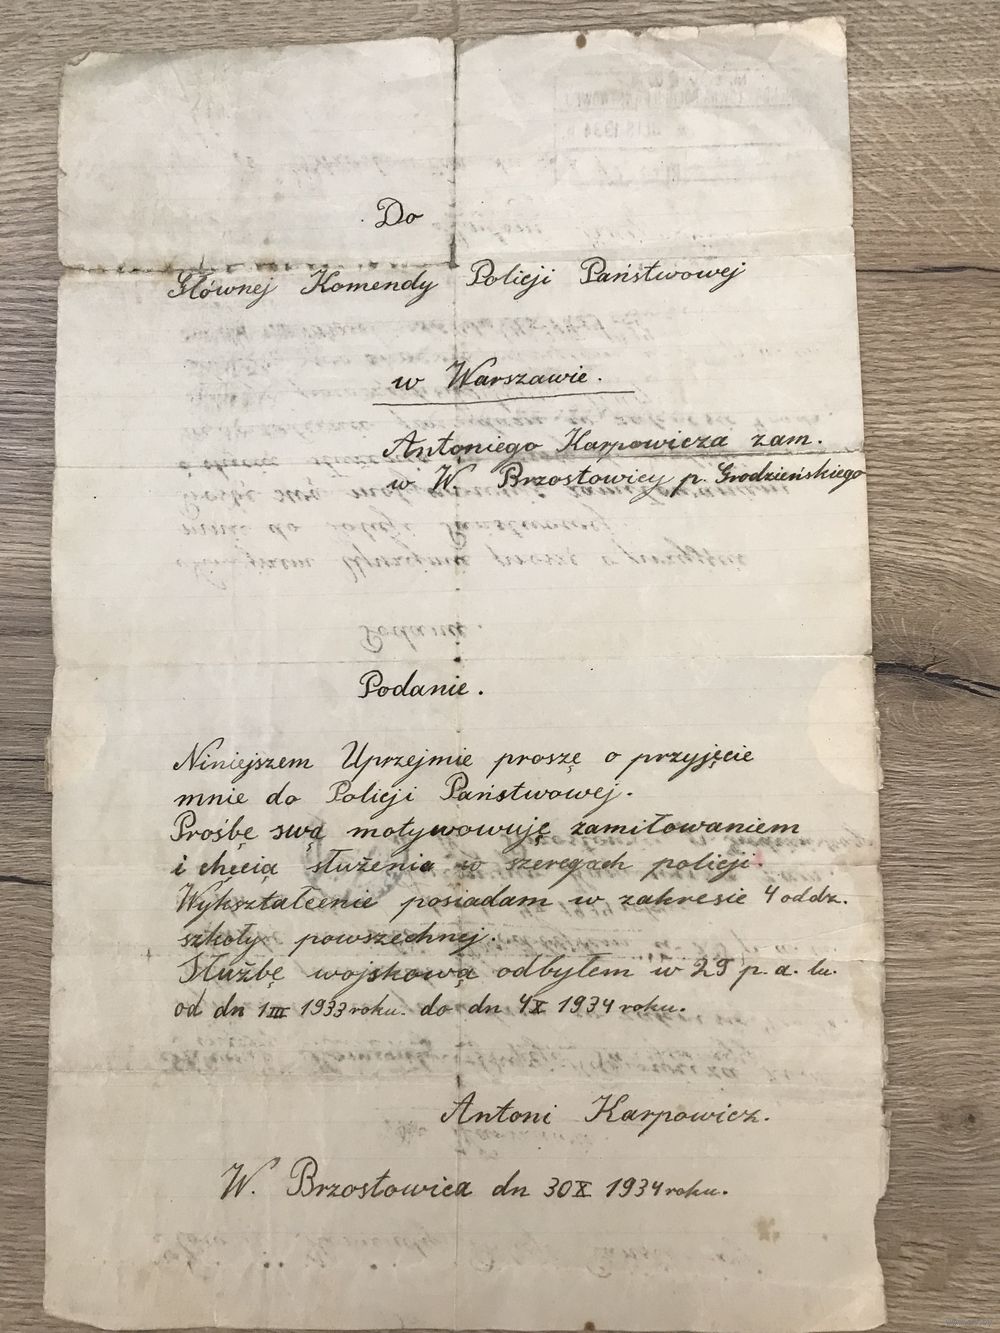 Do
Głównej Komendy Policji Państwowej
w Warszawie.
Antoniego Karpowicza zam.
w W. Brzostowicy p. Grodzieńskiego
Podanie.
Niniejszem Uprzejmie proszę o przyjęcie
mnie do Policji Państwowej.
Prośbę swą motywowuję zamiłowaniem
i chęcią służenia w szeregach policji.
Wykształcenie posiadam w zakresie 4 oddz.
szkoły powszechnej.
Służbę wojskową odbyłem w 29 p. a. lu.
od dn 1 III 1933 roku. do dn 4 X 1934 roku.
Antoni Karpowicz.
W. Brzostowica dn 30 X 1934 roku.